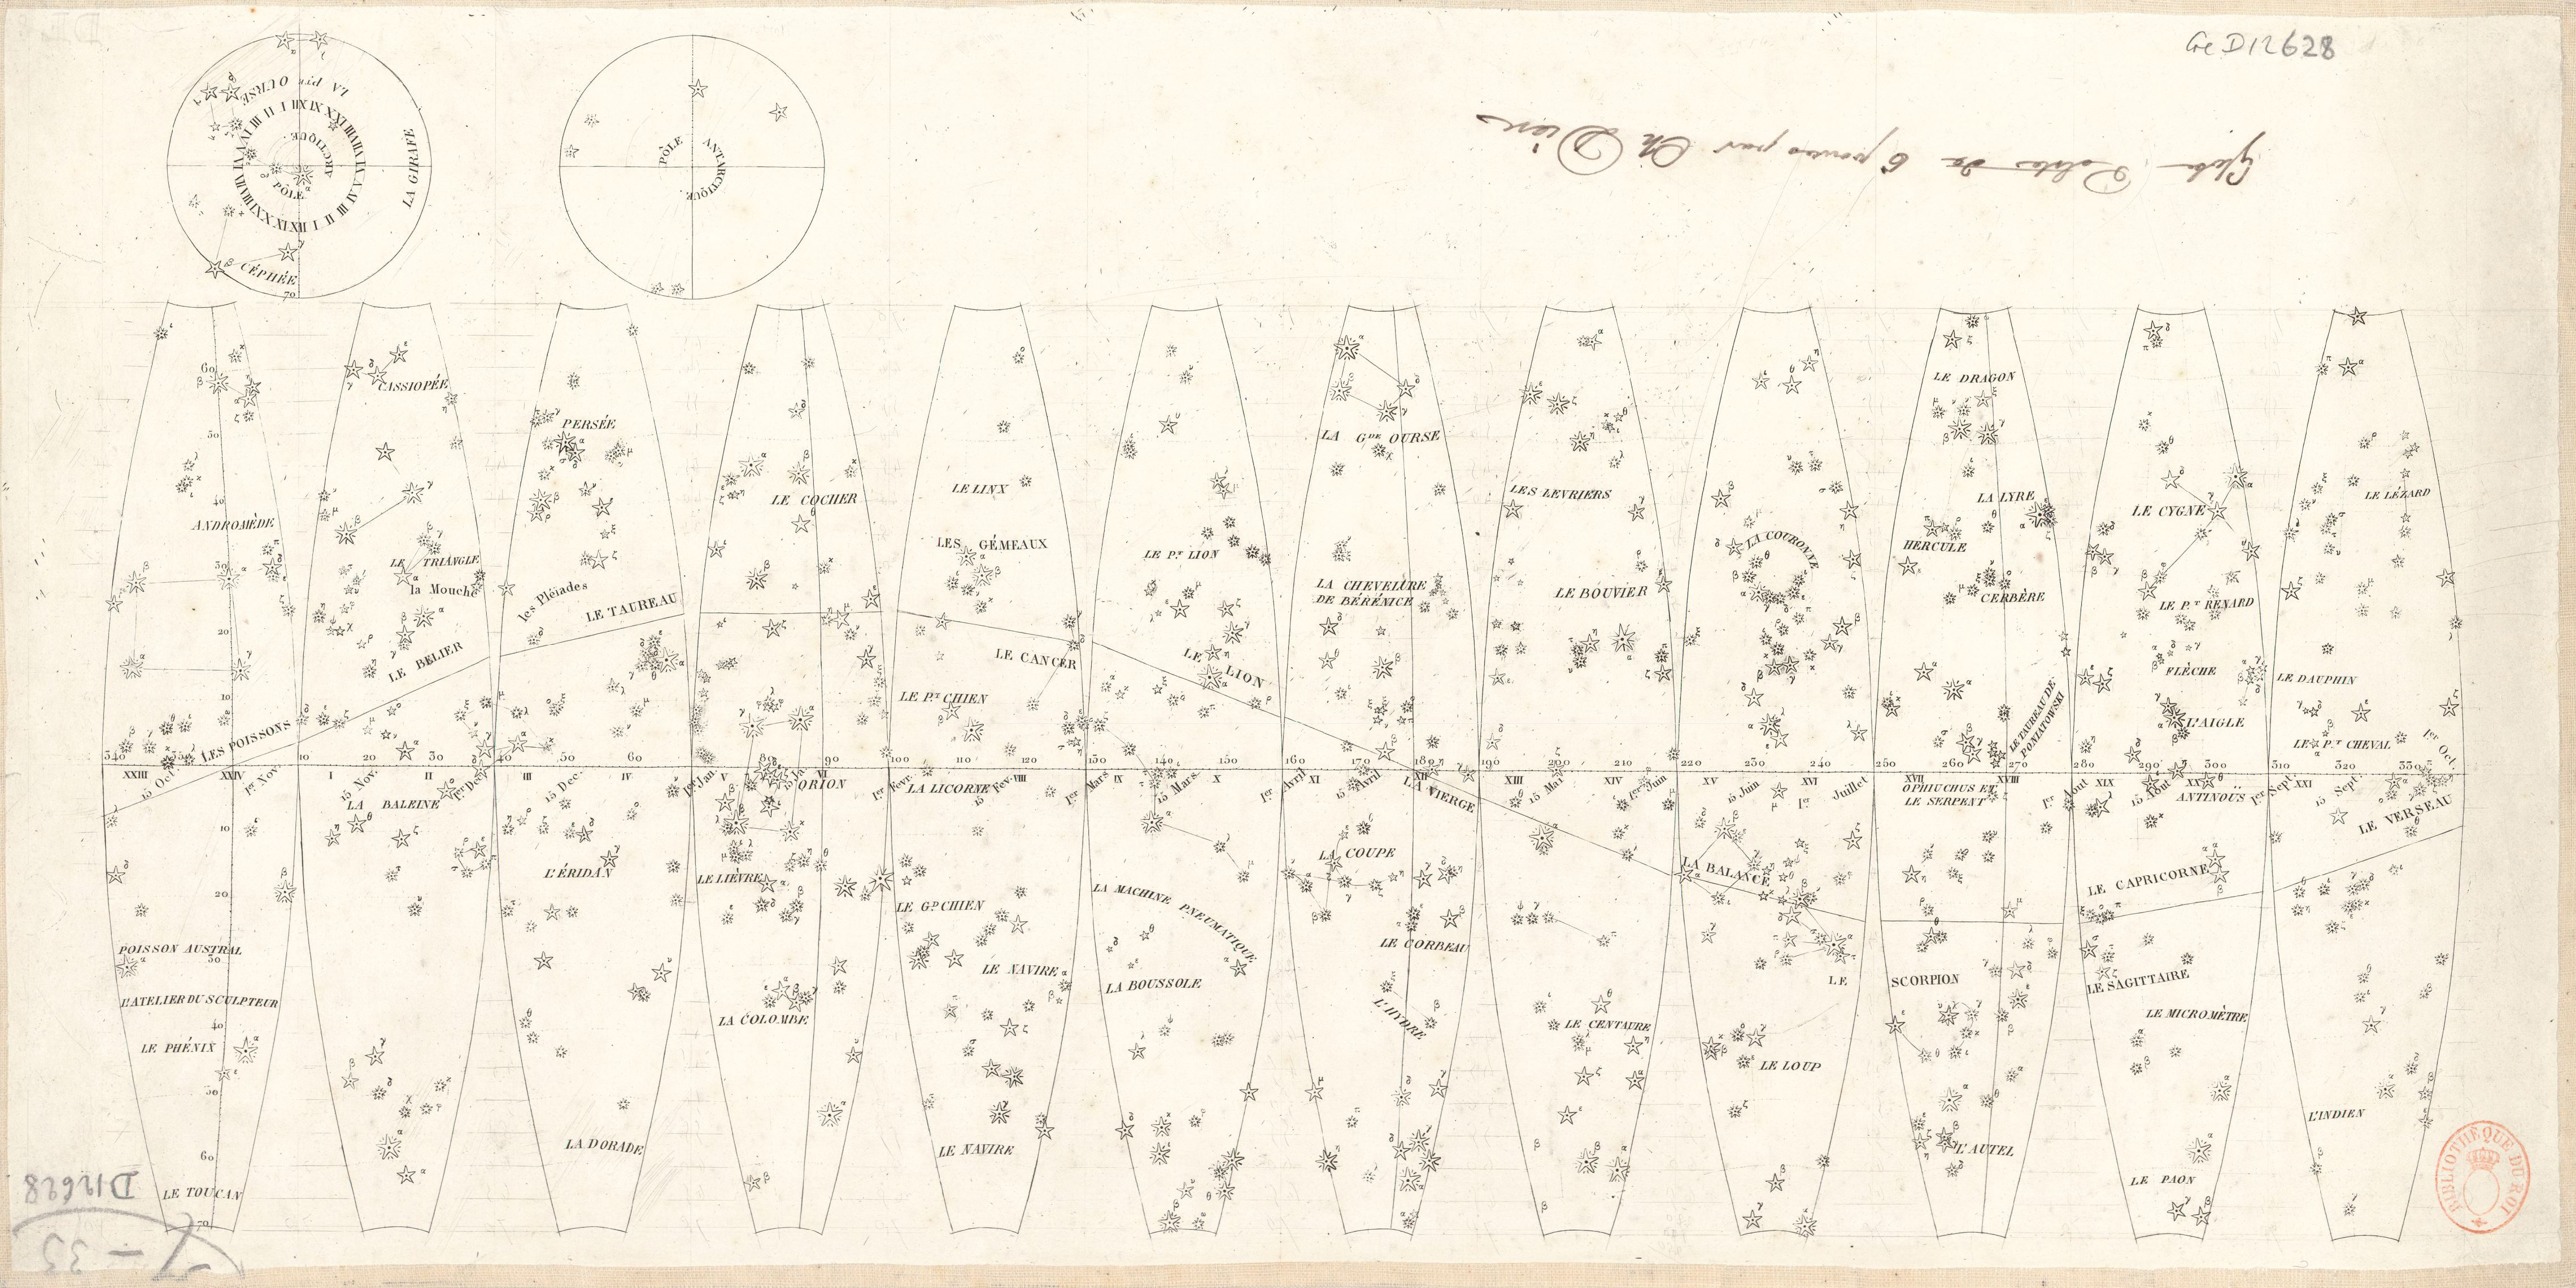 Ge D12628
LA P.te OURSE
PÔLE
ARCTIQUE.
LA GIRAFE
CÉPHÉE
70
PÔLE
ANTARCTIQUE.
Globe Céleste de 6 pouces par Ch Dien
60
50
40
30
20
10
CASSIOPÉE
PERSÉE
LE COCHER
LE LINX
LES GÉMEAUX
LE P.T LION
LA G.DE OURSE
LA CHEVELURE
DE BÉRÉNICE
LES LEVRIERS
LE BOUVIER
LA COURONNE
LE DRAGON
LA LYRE
HERCULE
CERBÈRE
LE CYGNE
LE P.T RENARD
LE LÉZARD
ANDROMÈDE
LE TRIANGLE
la Mouche
les Pléiades
LE TAUREAU
LE BELIER
LES POISSONS
LE P.T CHIEN
LE CANCER
LE LION
LE TAUREAU DE
PONIATOWSKI
FLÈCHE
L'AIGLE
LE DAUPHIN
LE P.T CHEVAL
340 350 10 20 30 40 50 60 80 90 100 110 120 130 140 150 160 170 180 190 200 210 220 230 240 250 260 270 280 290 300 310 320 330
XXIII XXIV I II III IV V VI VIII IX X XI XII XIII XIV XV XVI XVII XVIII XIX XX XXI
15 Oct. 1.er Nov. 15 Nov. 1.er Dec. 15 Dec. 1.er Jan. 15 Ja. 1.er Fevr. 15 Fev. 1.er Mars 15 Mars 1.er Avril 15 Avril 15 Mai 1.er Juin 15 Juin 1.er Juillet 1.er Aout 15 Aout 1.er Sept. 15 Sept. 1.er Oct.
LA BALEINE
ORION
LA LICORNE
LA VIERGE
OPHIUCHUS ET
LE SERPENT
ANTINOÜS
LE VERSEAU
10
20
30
40
50
60
70
L'ÉRIDAN
LE LIÈVRE
LE G.D CHIEN
LA MACHINE PNEUMATIQUE
LA COUPE
LA BALANCE
LE CAPRICORNE
POISSON AUSTRAL
L'ATELIER DU SCULPTEUR
LE PHÉNIX
LA COLOMBE
LE NAVIRE
LA BOUSSOLE
LE CORBEAU
L'HYDRE
LE CENTAURE
LE LOUP
LE SCORPION
LE SAGITTAIRE
LE MICROMÈTRE
LE TOUCAN
LA DORADE
LE NAVIRE
L'AUTEL
LE PAON
L'INDIEN
D12628
BIBLIOTHÈQUE DU ROI